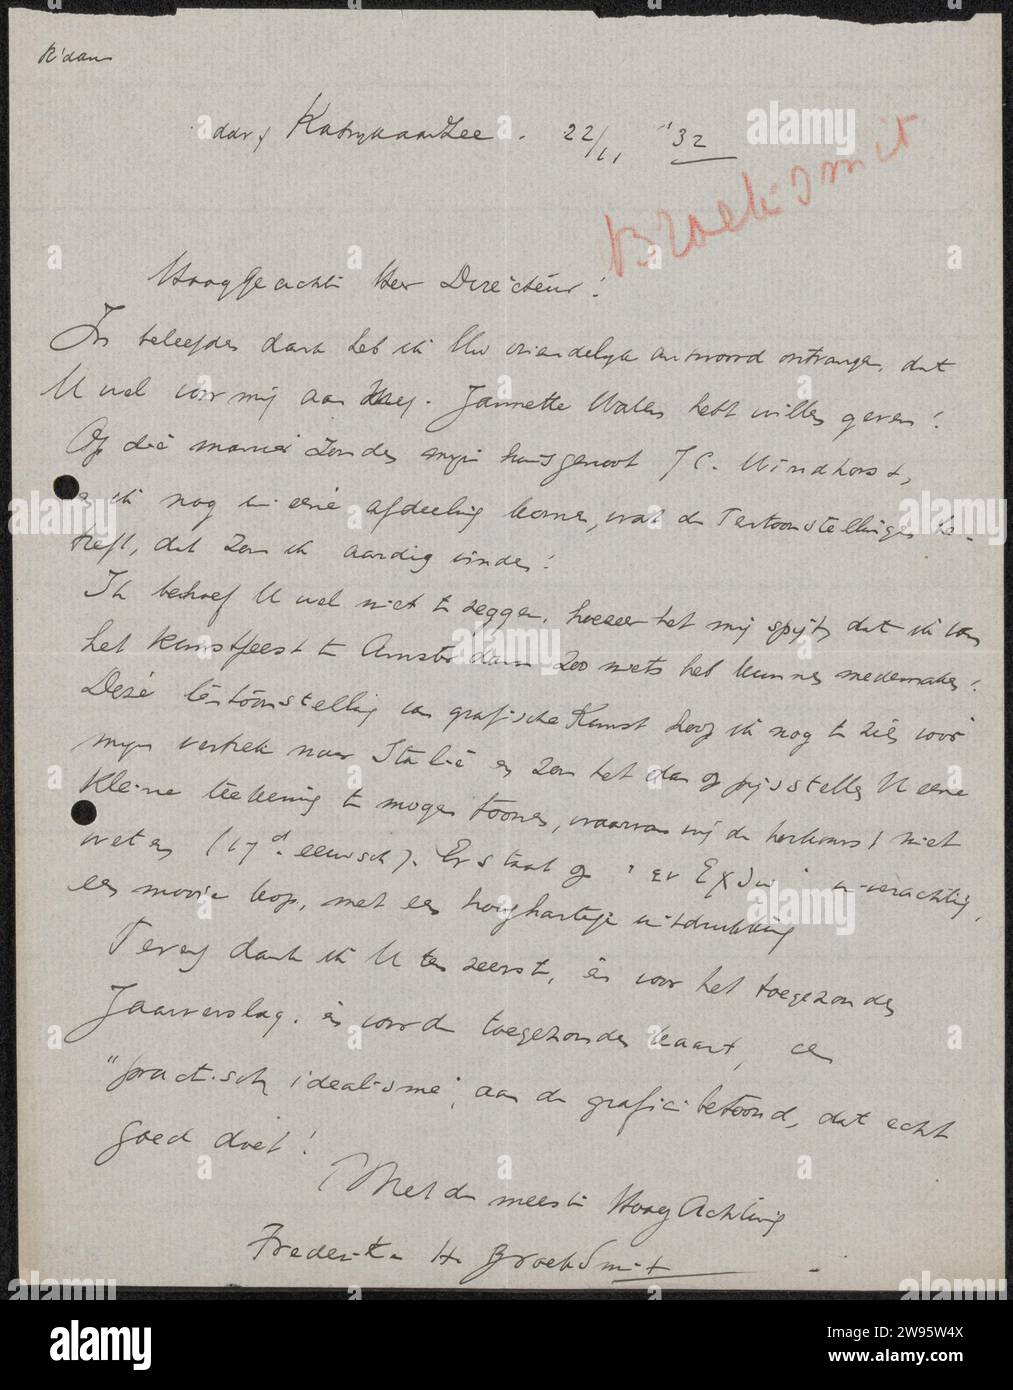 R'dam
Katwijk aan Zee. 22/11 "32
Broeksmit
Hooggeachte Heer Directeur!
In beleefden dank heb ik Uw vriendelijk antwoord ontvangen, dat
U wel voor mij aan Mej. Jannette Walen hebt willen geven!
Op die manier zonden mijn huisgenoot J C. Windhorst,
en ik nog in eene afdeeling komen, wat de Tentoonstellingen be-
treft, dat zou ik aardig vinden!
Ik behoef U wel niet te zeggen, hoezeer het mij spijt, dat ik van
het Kunstfeest te Amsterdam zoo niets heb kunnen medemaken!
Deze tentoonstelling van grafische Kunst hoop ik nog te zien vóór
mijn vertrek naar Italië en zou het dan op prijs stellen U eene
kleine teekening te mogen toonen, waarvan wij de herkomst niet
weten (17d eeuwsch). Er staat op
een mooie kop, met een hooghartige uitdrukking
Tevens dank ik U ten zeerste, én voor het toegezonden
Jaarverslag. én voor de toegezonden kaart, een
"practisch idealisme", aan de grafici betoond, dat echt
goed doet!
Met de meeste HoogAchting
Frederika H. Broeksmit
alamy
Image ID: 2W95W4X
www.alamy.com